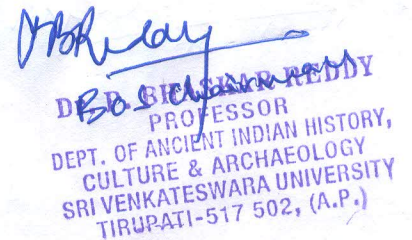 BReddy
DR. P. BHASKAR REDDY
BOS Chairman
PROFESSOR
DEPT. OF ANCIENT INDIAN HISTORY,
CULTURE & ARCHAEOLOGY
SRI VENKATESWARA UNIVERSITY
TIRUPATI-517 502, (A.P.)